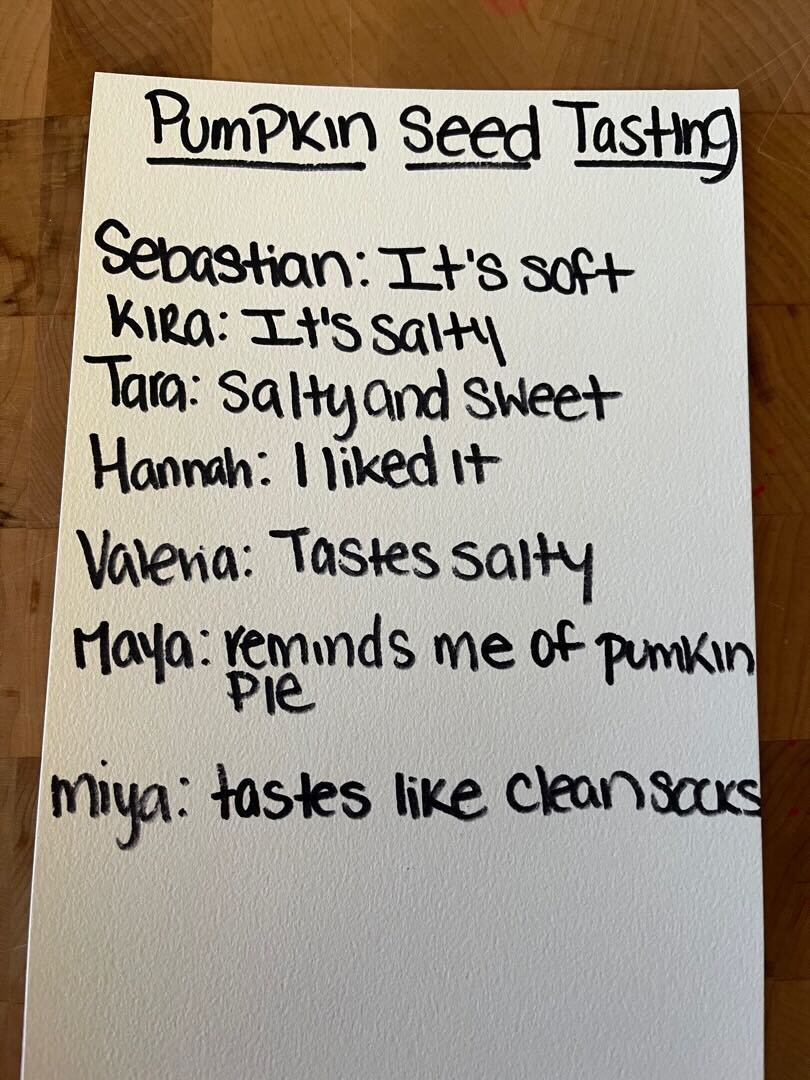 Pumpkin Seed Tasting
Sebastian: It's soft
Kira: It's salty
Tara: Salty and sweet
Hannah: I liked it
Valeria: Tastes salty
Maya: reminds me of pumkin
pie
miya: tastes like clean socks